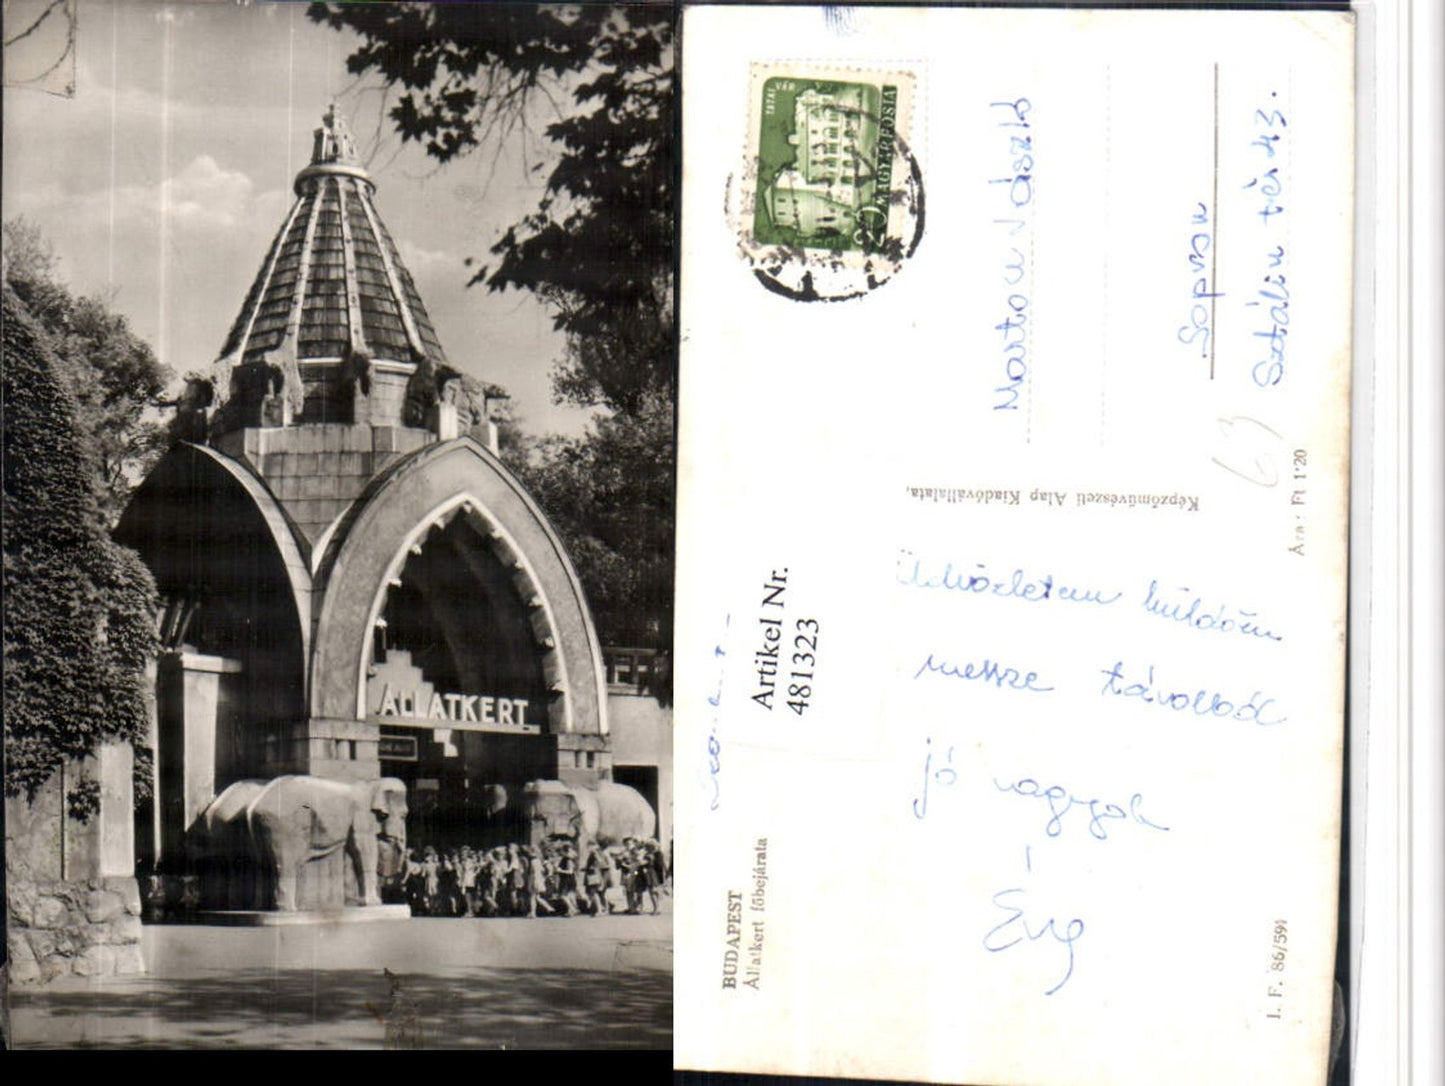 ÁLLATKERT
TATAI VÁR
MAGYAR POSTA
20
Marton László
Sopron
Sztálin tér 43.
63
Képzőművészeti Alap Kiadóvállalata.
Ára: Ft 1·20
Üdvözletem küldöm
messze távolból
jó vagyok
Évq
Artikel Nr.
481323
BUDAPEST
Állatkert főbejárata
I. F. 86/591